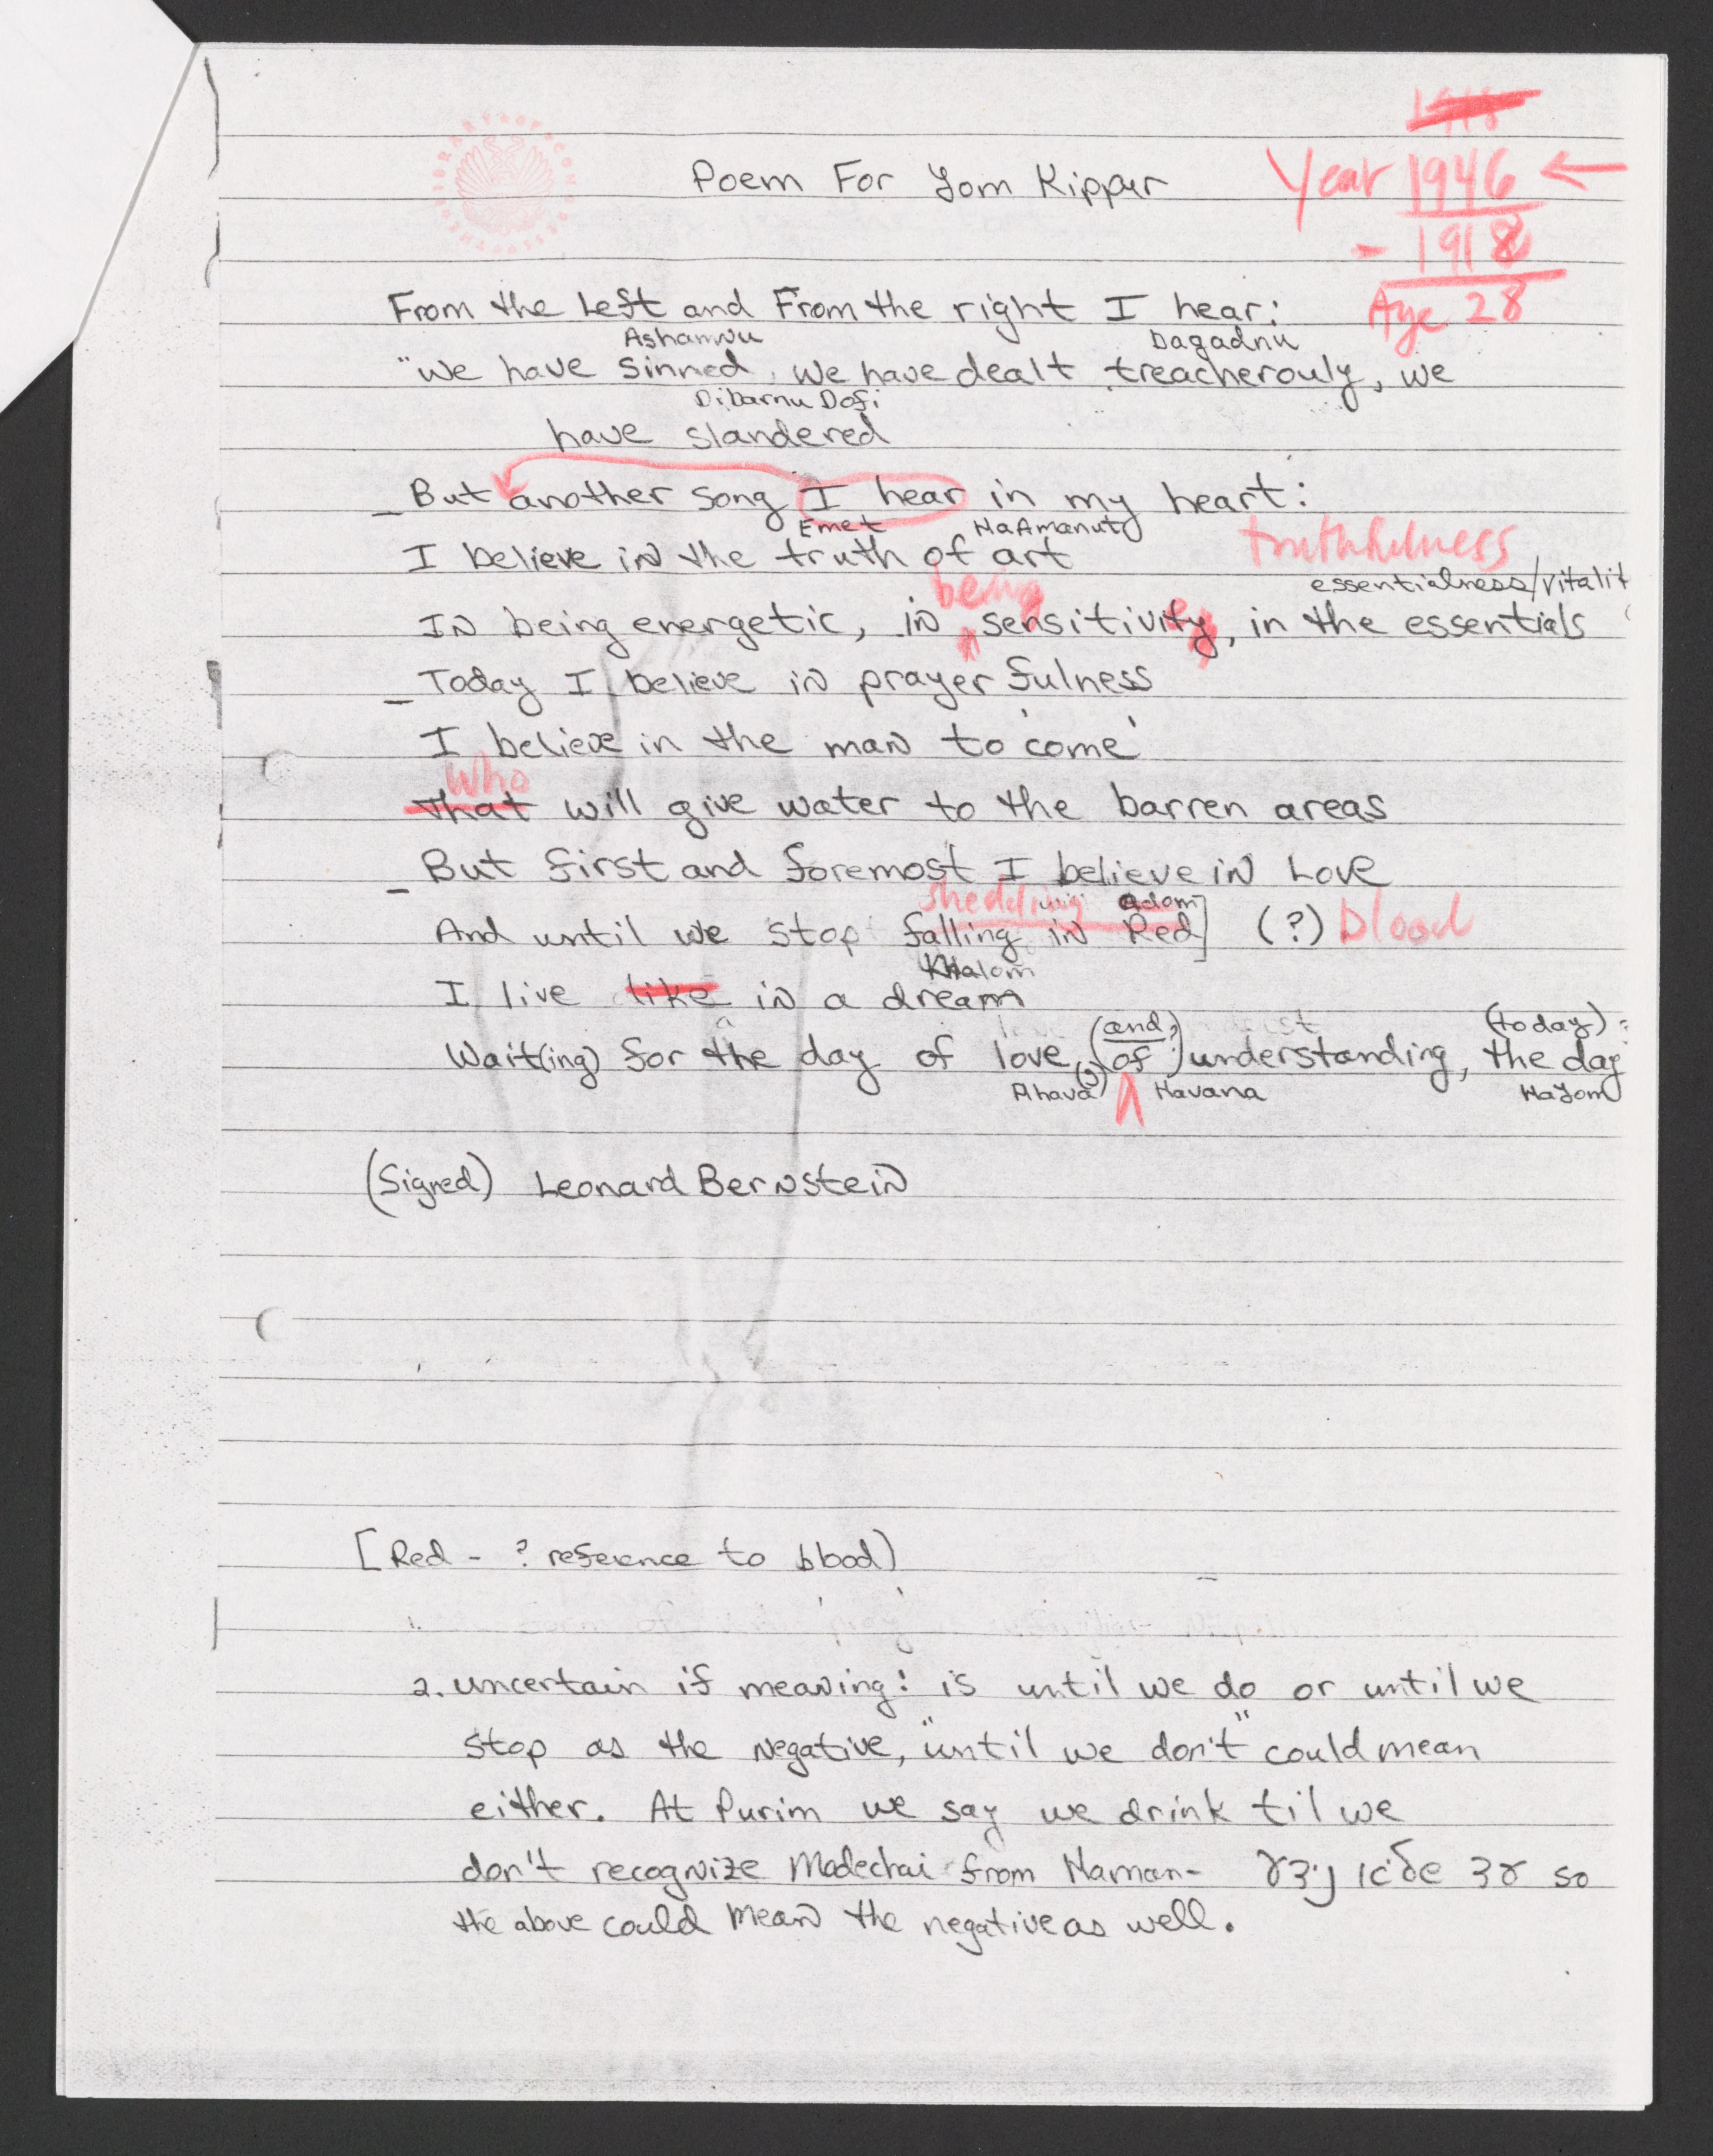 1918
Poem For Yom Kippur
Year 1946 ←
- 1918
Age 28
From the Left and From the right I hear:
Ashamnu Dagadnu
"We have sinned, we have dealt treacherouly, we
Dibarnu Dofi
have slandered
But another song I hear in my heart:
Emet HaAmanut
I believe in the truth of art truthfulness
being essentialness/vitalit
In being energetic, in sensitivity, in the essentials
Today I believe in prayerfulness
I believe in the man to 'come'
who
that will give water to the barren areas
But first and foremost I believe in Love
shedding adom
And until we stop falling in Red] (?) blood
Khalom
I live like in a dream
a (and,) (today)
Wait(ing) for the day of love, (of) understanding, the day
Ahava(?) Havana HaYom
(Signed) Leonard Bernstein
[Red - ? reference to blood)
2. uncertain if meaning: is until we do or until we
stop as the negative, "until we don't" could mean
either. At Purim we say we drink til we
don't recognize Modechai from Haman- עד שלא ידע so
the above could mean the negative as well.